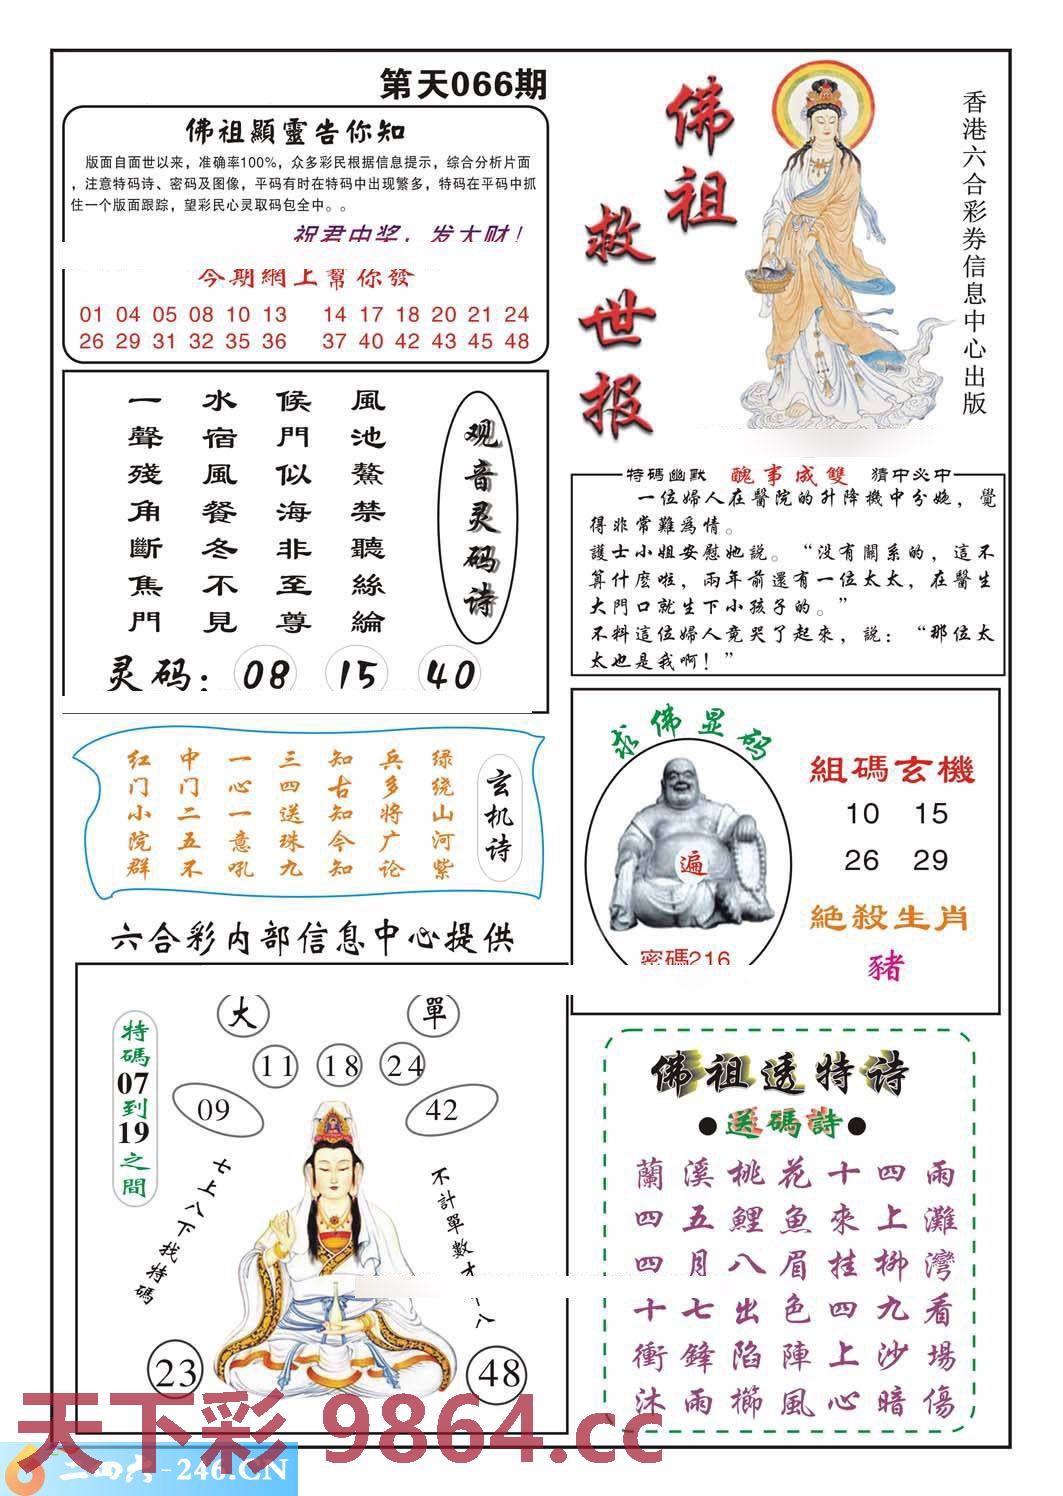 第天066期
佛祖顯靈告你知
版面自面世以来，准确率100%，众多彩民根据信息提示，综合分析片面
，注意特码诗、密码及图像，平码有时在特码中出现繁多，特码在平码中抓
住一个版面跟踪，望彩民心灵取码包全中。。
祝君中奖，发大财！
今期網上幫你發
01 04 05 08 10 13 14 17 18 20 21 24
26 29 31 32 35 36 37 40 42 43 45 48
佛祖
救世报
香港六合彩券信息中心出版
观音灵码诗
風池鰲禁聽絲綸
侯門似海非至尊
水宿風餐冬不見
一聲殘角斷焦門
灵码：08 15 40
特碼幽默 醜事成雙 猜中必中
一位婦人在醫院的升降機中分娩，覺
得非常難爲情。
護士小姐安慰她說。“没有關系的，這不
算什麽啦，兩年前還有一位太太，在醫生
大門口就生下小孩子的。”
不料這位婦人竟哭了起來，説：“那位太
太也是我啊！”
玄机诗
绿绕山河紫
兵多将广论
知古知今知
三四送珠九
一心一意吼
中门二五不
红门小院群
求佛显码
遍
密碼216
組碼玄機
10 15
26 29
絕殺生肖
豬
六合彩内部信息中心提供
大 單
11 18 24
09 42
特碼07到19之間
七上八下找特碼
不計單數
八
23 48
佛祖透特诗
●送碼詩●
蘭溪桃花十四雨
四五鯉魚來上灘
四月八眉挂柳灣
十七出色四九看
衝鋒陷陣上沙場
沐雨櫛風心暗傷
天下彩 9864.cc
二四六-246.CN